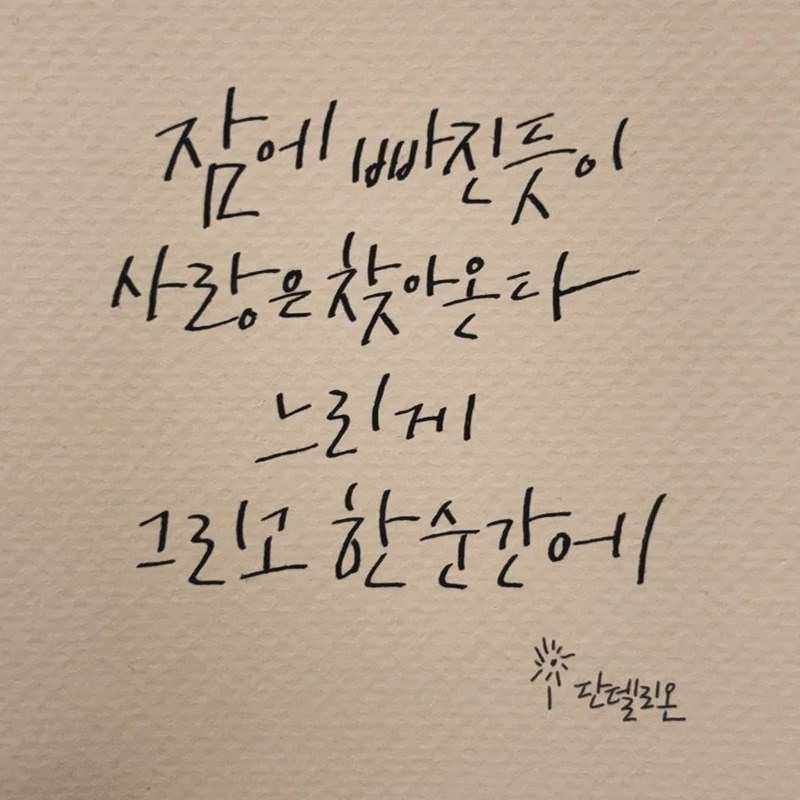 잠에 빠진듯이
사랑은 찾아온다
느리게
그리고 한순간에
단델리온